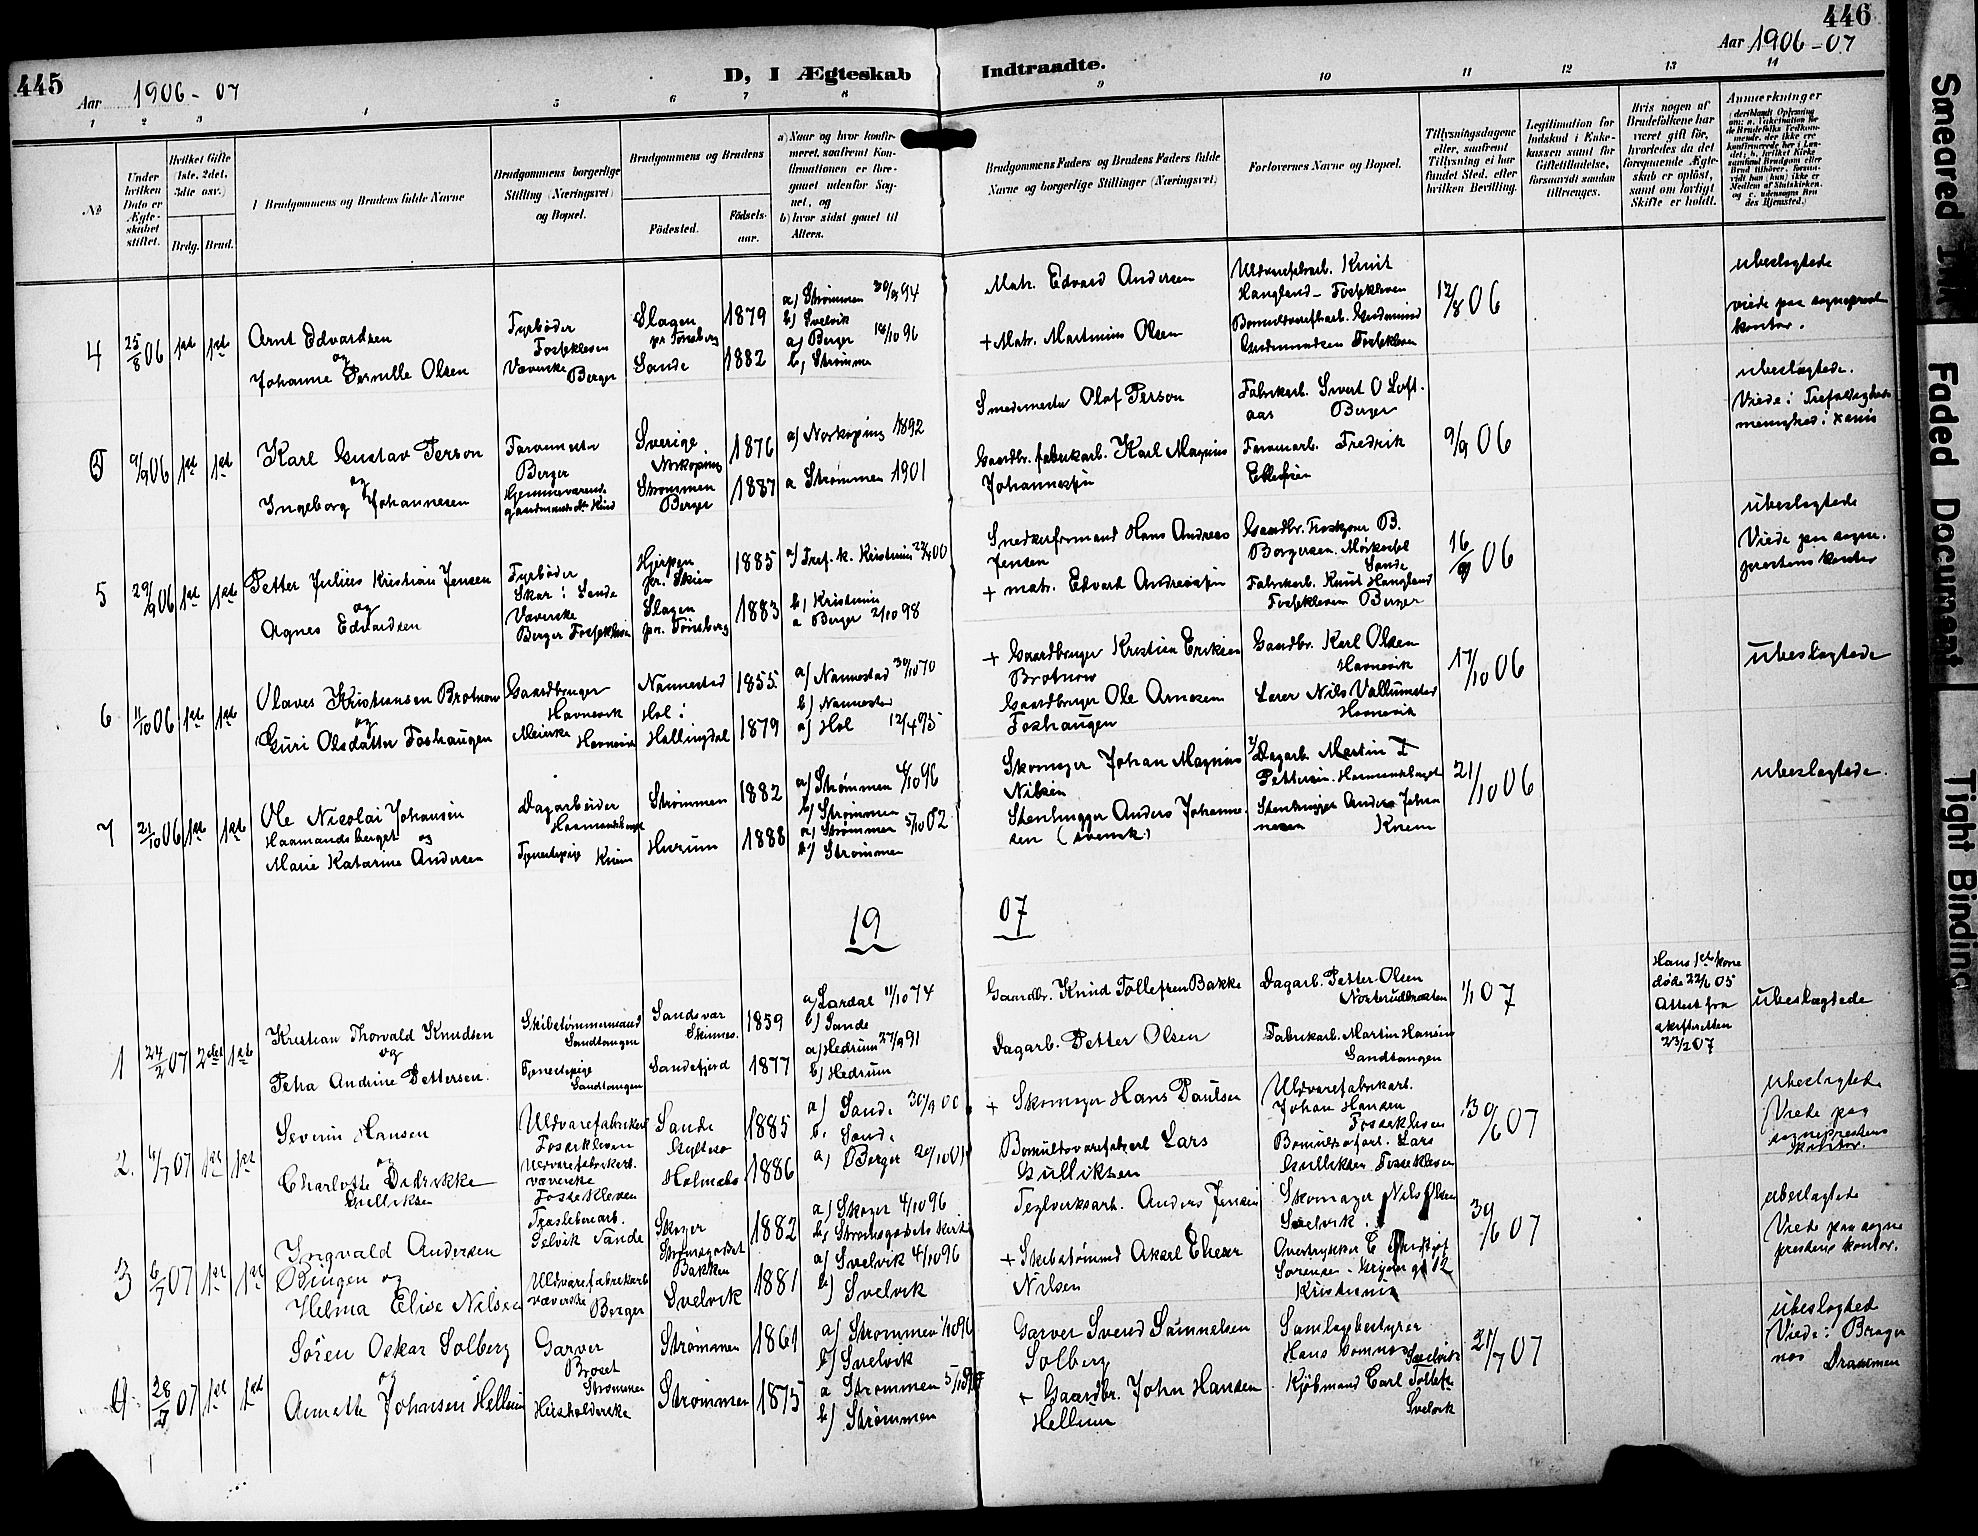 445
Aar 1906-07
D, I Ægteskab Indtraadte.
446
Aar 1906-07
1 2 3 4 5 6 7 8 9 10 11 12 13 14
No
Under hvilken Dato er Ægteskabet stiftet.
Hvilket Gifte (1ste, 2det, 3die osv.)
Brdg. Brud.
Brudgommens og Brudens fulde Navne
Brudgommens borgerlige Stilling (Næringsvei) og Bopæl.
Brudgommens og Brudens
Födested.
Födselsaar.
a) Naar og hvor konfirmeret, saafremt Konfirmationen er foregaaet udenfor Sognet, og
b) hvor sidst gaaet til Alters.
Brudgommens Faders og Brudens Faders fulde Navne og borgerlige Stillinger (Næringsvei)
Forlovernes Navne og Bopæl.
Tillysningsdagene eller, saafremt Tillysning ei har fundet Sted, efter hvilken Bevilling.
Legitimation for Indskud i Enkekassen samt for Giftetilladelse, forsaavidt saadan tiltrænges.
Hvis nogen af Brudefolkene har været gift før, hvorledes da det foregaaende Ægteskab er opløst, samt om lovligt Skifte er holdt.
Anmærkninger
4 25/8 06 1ste 1ste
Arnt Edvardsen
og
Johanne Pernille Olsen
Fyrbøder
Fossekleven
Væverske
Berger
Slagen
pr Tönsberg
Sande
1879
1882
a) Strømmen 30/9 94
b) Svelvik
a) Berger 18/10 96
b, Strømme
Matr. Edvard Andersen
+ Matr. Martinius Olsen
Uldvarefabrarb. Knut
Hangland - Fossekleven
Bomuldvarefbarb. Gudmund
Gudmundsen Fossekleven
12/8 06
ubeslægtede
viede paa sogneprest
kontor.
5 9/9 06 1ste 1ste
Karl Gustav Person
og
Ingeborg Johannesen
Farvemester
Berger
Sverige
Norkøping
Strømmen
Berger
1876
1887
a) Norkøping 1892
a Strømmen 1901
Smedemester Olaf Person
Gaardbr. fabrikarb. Karl Magnus
Johannessen
Fabrikarb. Sivert O Loft-
aas Berger
Farverarb. Fredrik
Ellefsen
9/9 06
ubeslægtede.
Viede i Trefoldigheds
menighed i Xania
5 29/9 06 1ste 1ste
Petter Julius Kristian Jensen
og
Agnes Edvardsen
Fyrbøder
Skar i Sande
Væverske
Berger Fossekleven
Hjerpen
pr. Skien
Slagen
pr. Tönsberg
1885
1883
a) Tref. k. Kristiania 22/4 00
b, Kristiania
a Berger 2/10 98
Snedkerformand Hans Andreas
Jensen
+ matr. Edvard Andreassen
Gaardbr. B.
Borgersen. Mörkeset
Sande
Fabrikarb. Knut Hangland
Fossekleven Berger
16/9 06
ubeslægtede
Viede paa sogne-
prestens kontor
6 11/10 06 1ste 1ste
Olaves Kristiansen Brotnow
og
Guri Olsdatter Foshaugen
Gaardbruger
Havnevik
Meierske Havnevik
Nannestad
Hol i
Hallingdal
1855
1879
a) Nannestad 30/10 70
b) Nannestad
a) Hol 12/4 95
+ Gaardbruger Kristian Eriksen
Brotnow
Gaardbruger Ole Arnesen
Foshaugen
Gaardbr. Karl Olsen
Havnevik
Lærer Nils Vallumstad
Havnevik
17/10 06
ubeslægtede
7 21/10 06 1ste 1ste
Ole Nicolai Johansen
Haamandsberget og
Marie Katarine Andersen
Dagarbeider
Haamandsberget
Tjenestepige Knem
Strømmen
Hurum
1882
1888
a) Strømmen 4/10 96
b) Strømmen
a) Strømmen 5/10 02
b) Strømmen
Skomager Johan Magnus
Nilsen
Stenhugger Anders Johanne
sen (svensk)
Dagarb. Martin T
Pettersen. Haamandsberget
Stenhugger Anders Johan
nesen Knem
21/10 06
ubeslægtede.
19 07
1 24/2 07 2det 1ste
Kristian Thorvald Knudsen
og
Petra Andrine Pettersen.
Skibstømmermand
Sandtangen
Tjenestepige
Sandtangen
Sandsvær
Sandefjord
1859
1877
a) Lardal 11/10 74
b) Sande
a) Hedrum 27/9 91
b) Hedrum
Gaardbr. Knud Tollefsen Bakke
Dagarb. Petter Olsen
Dagarb. Petter Olsen
Norterudbraaten
Fabrikarb. Martin Hansen
Sandtangen
1/1 07
Hans 1ste kone
døde 22/6 05
Attest fra
skifteretten
23/2 07
ubeslægtede
2. 4/7 07 1ste 1ste
Severin Hansen
og
Charlotte Didrikke
Gulliksen
Uldvarefabrikarb
Fossekleven
Uldvarefabrikarb.
væverske
Fossekleven
Sande
Holmsbo
1885
1886
a) Sande 30/9 00
b. Sande
a) Berger 20/10 01
+ Skomager Hans Paulsen
Bomuldsvarefabrarb Lars
Gulliksen
Uldvarefabrikarb.
Johan Hansen
Fossekleven
Bomuldsvarefarb. Lars
Gulliksen Fossekleven
30/6 07
ubeslægtede
Viede paa
sogneprestens
kontor.
3 6/7 07 1ste 1ste
Ingvald Andersen
Bingen og
Helma Elise Nilsen
Træsliberiarb.
Selvik Sande
Uldvarefabrikarb
væverske Berger
Skoger
Strømsgodset
Bakken
Svelvik
1882
1881
a) Skoger 4/10 96
b) Strømsgodsets kirke
a) Svelvik 4/10 96
b) Svelvik
Teglverksarb. Anders Jensen
+ Skibstømmerd Akarl Eliezer
Nilsen
Skomager Nils Olsen
Svelvik.
Overtrykker C
Sørensen
Kristiania
30/6 07
ubeslægtede
Viede paa sogne
prestens kontor.
4. 28/7 07 1ste 1ste
Søren Oskar Solberg
og
Annette Johansen Hellum
Garver
Strømmen
Husholderske
Strømmen
Strømmen
1861
1875
a) Strømmen
b) Svelvik
a Strømmen
b) Strømmen
Garver Svend Samuelsen
Solberg
+ Gaardbr. John Hansen
Hellum
Samlagsbestyrer
Hans Svelvik
Kjøbmand Carl Tollefs
Svelvik
21/7 07
ubeslægted
Viede i Brager
nes Drammen
Smeared Ink
Faded Document
Tight Binding